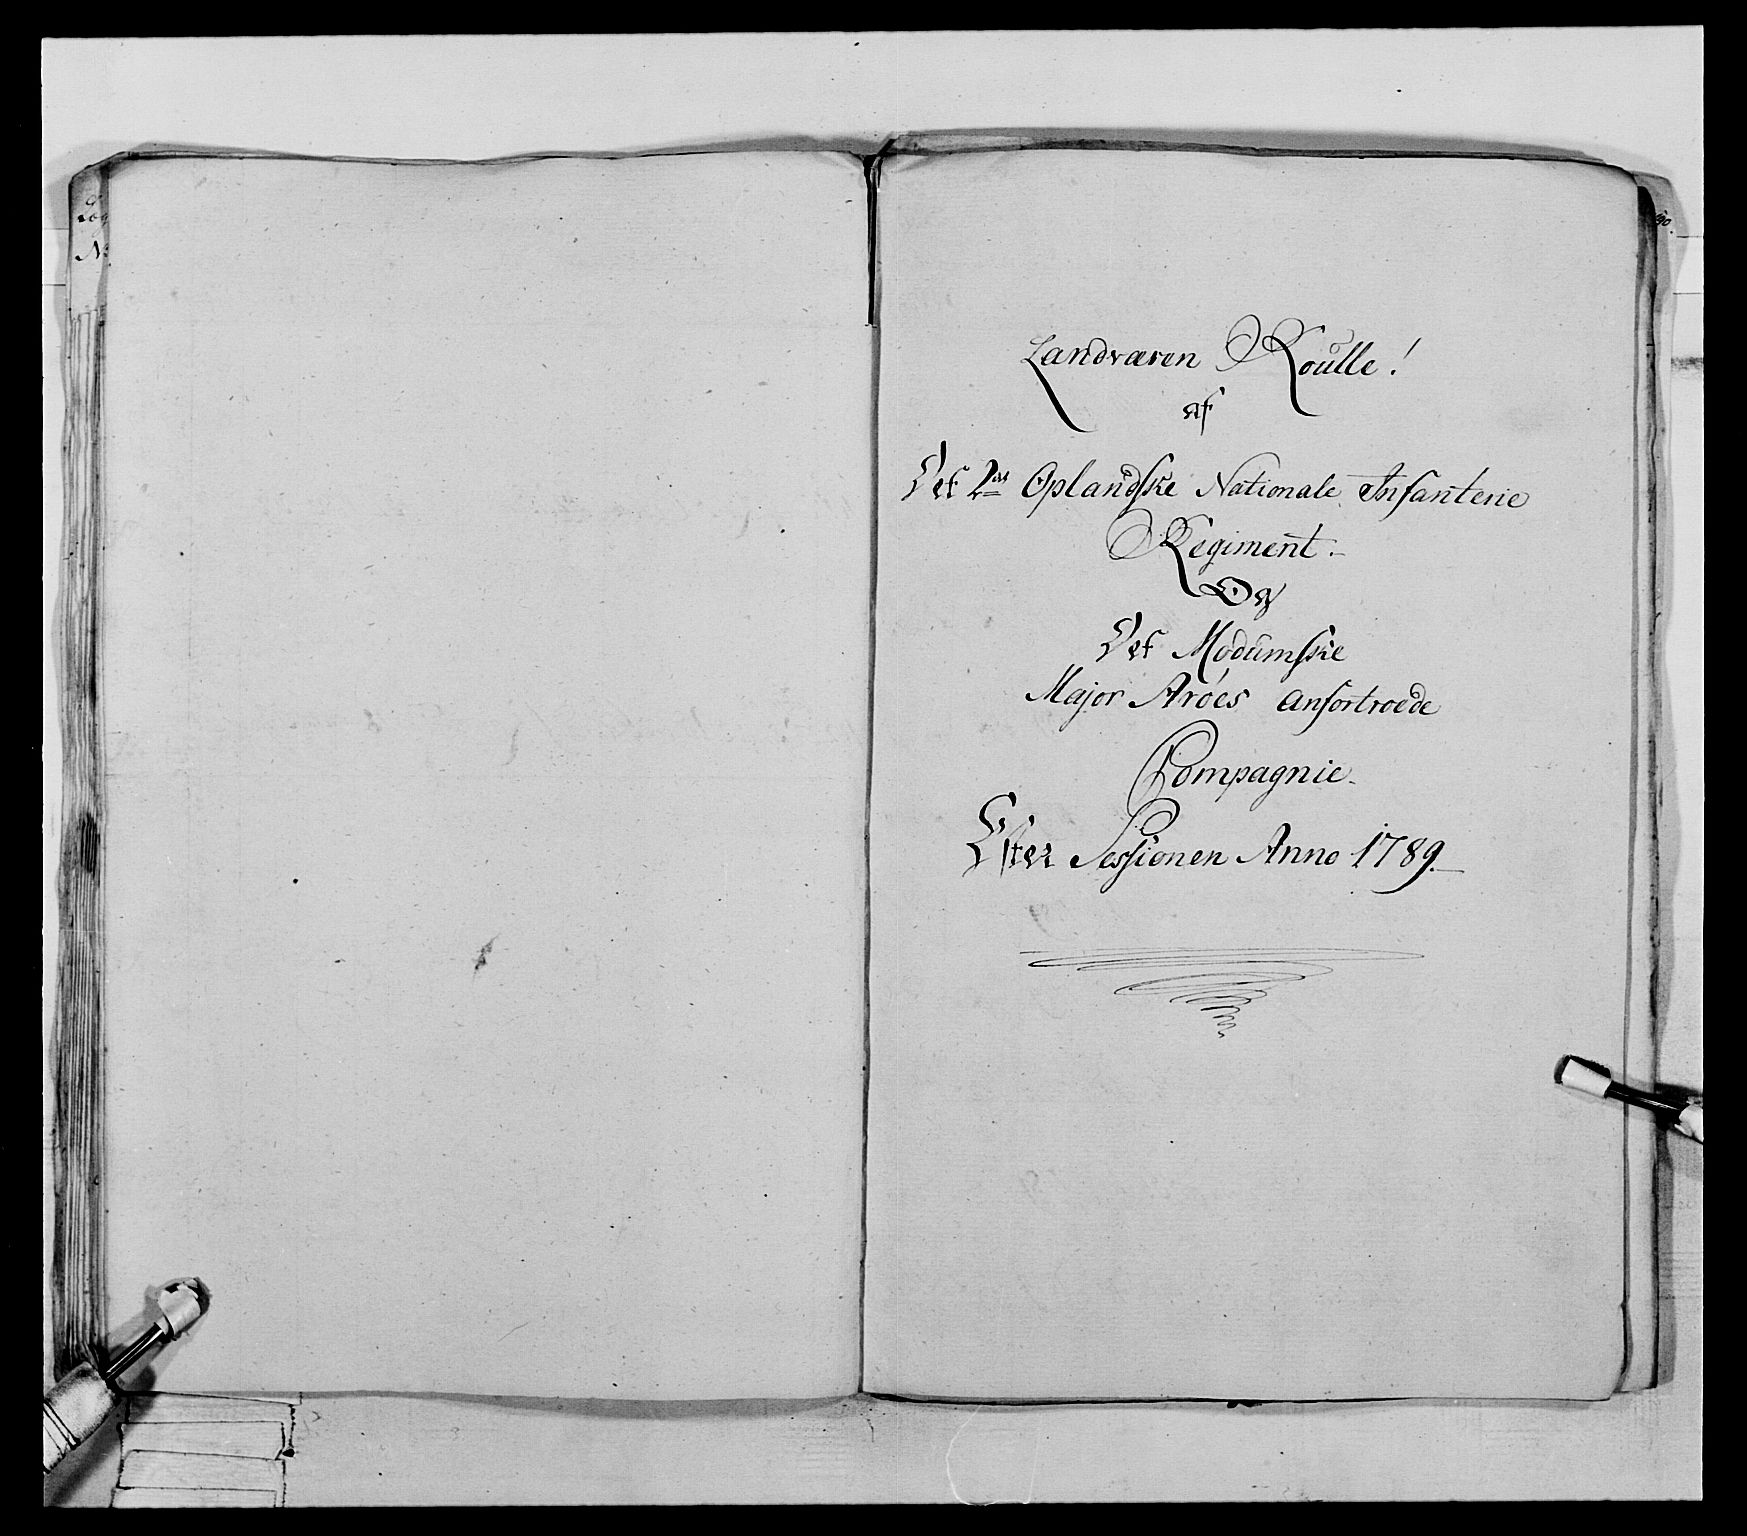 Log
No
Landværen Roulle!
af
Det 2det Oplandske Nationale Infanterie
Regiment.
Og
Det Modumske
Major Arøes anfortroede
Compagnie.
Efter Sessionen Anno 1789.